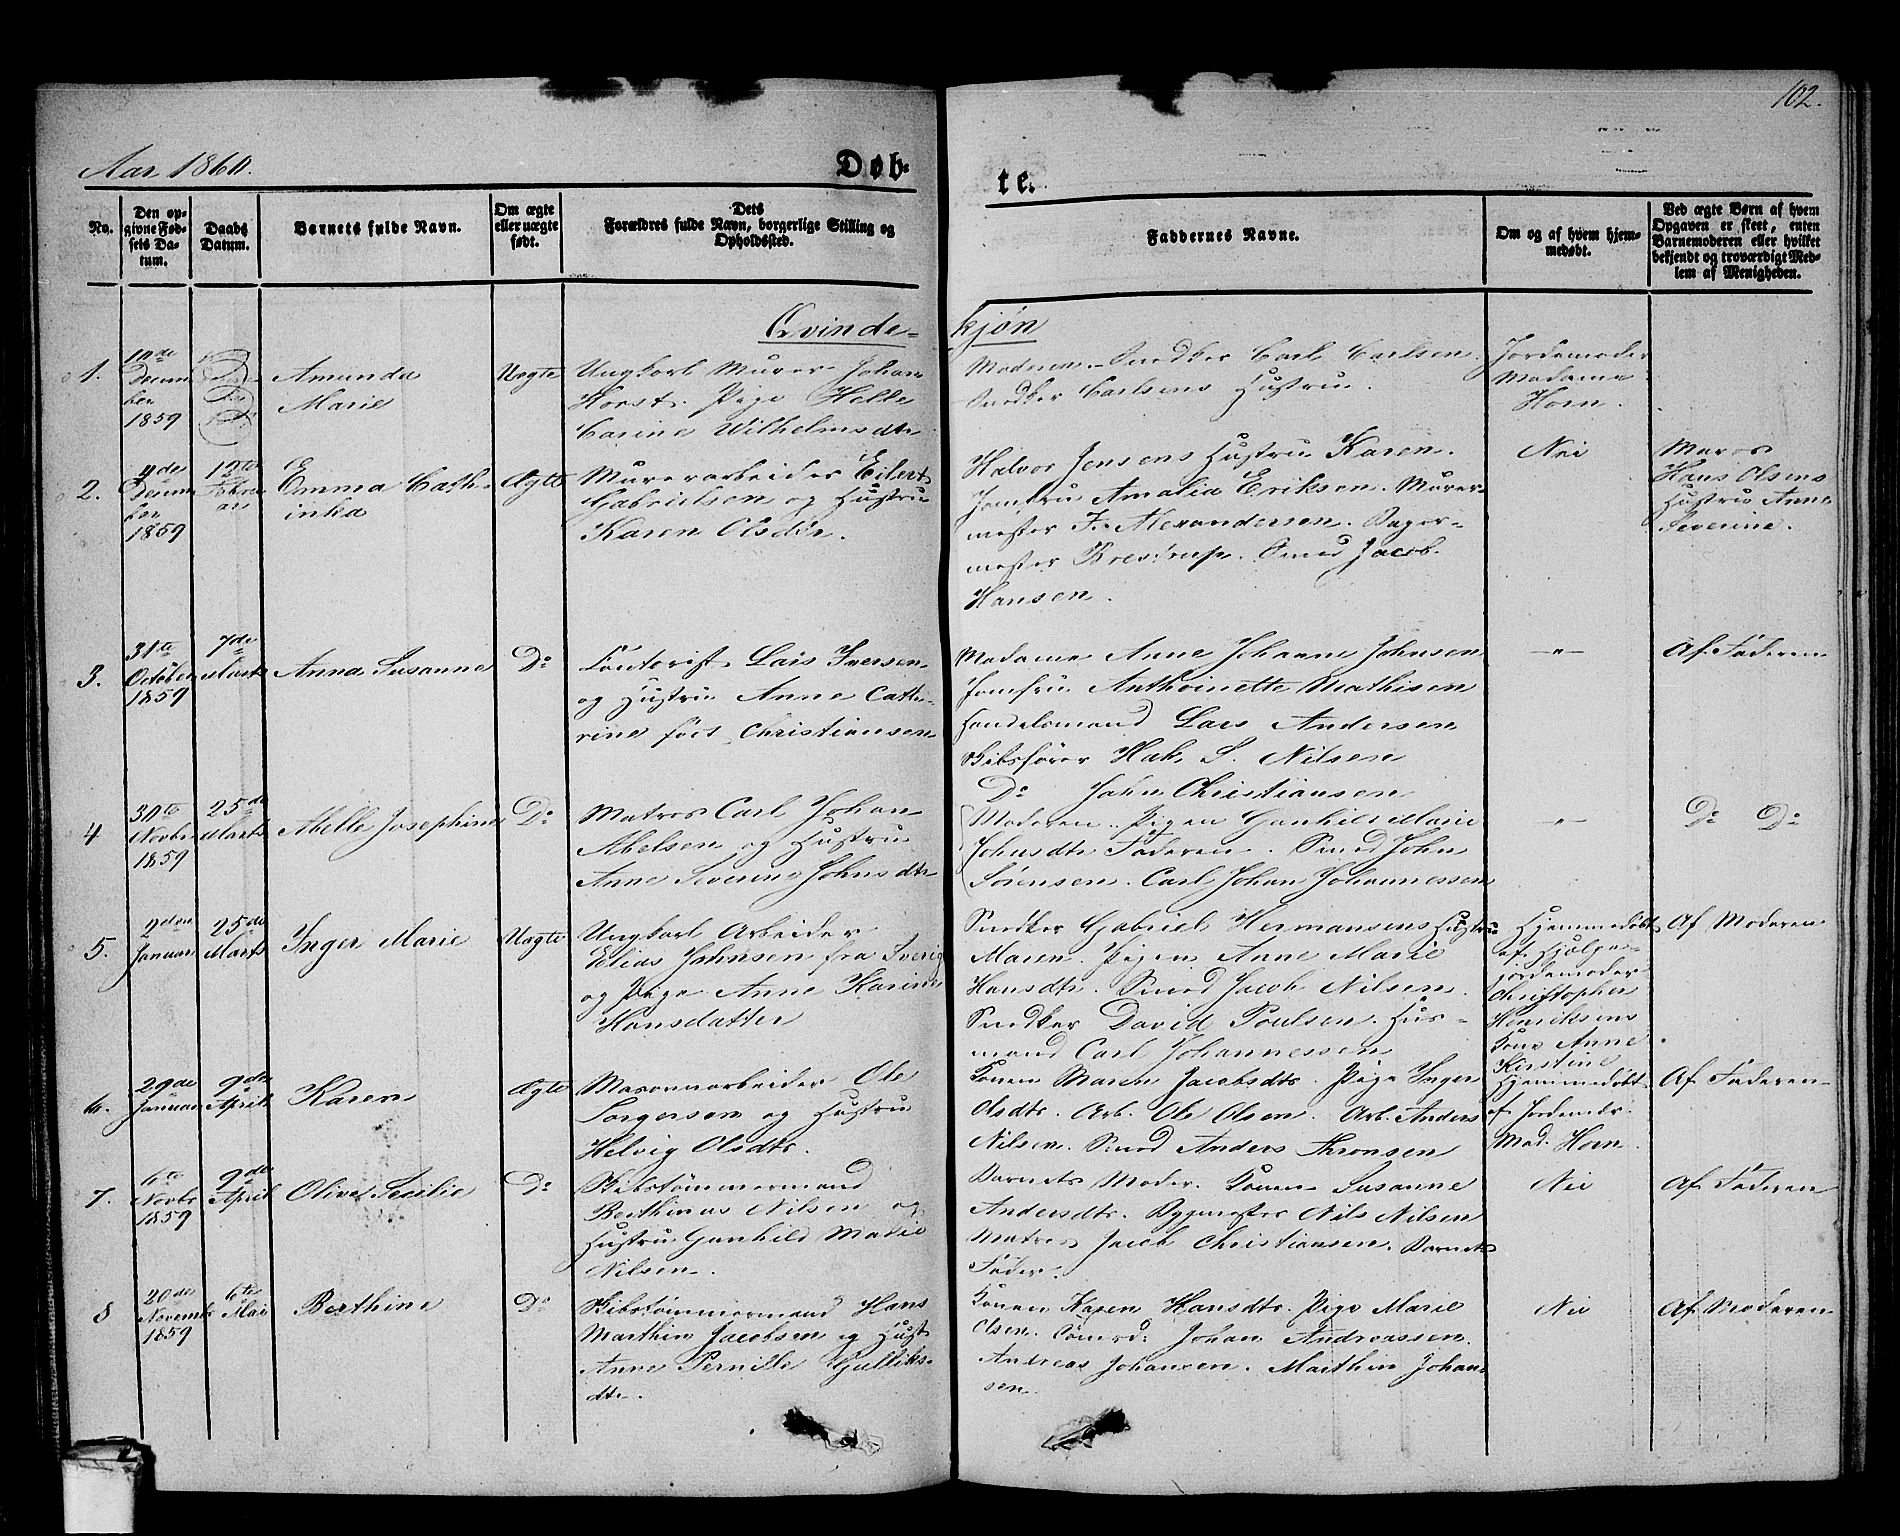 102.
Aar 1860.
Døb-
te.
No.
Den op-
givne Fød-
sels Da-
tum.
Daabs
Datum.
Barnets fulde Navn.
Om ægte
eller uægte
født.
Dets
Forældres fulde Navn, borgerlige Stilling og
Opholdssted.
Faddernes Navne.
Om og af hvem hjem-
medøbt.
Ved ægte Børn af hvem
Opgaven er skeet, enten
Barnemoderen eller hvilket
bekjendt og troværdigt Med-
lem af Menigheden.
Qvinde-
kjøn
1.
10de
Decem
ber
1859
Amunda
Marie
Uægte
Ungkarl Murer Johan
Horst. Pige Helle
Carine Wilhelmsdtr.
Moderen. Snedker Carl Carlsen.
Snedker Carlsens Hustru.
Jordemoder
Madame
Horn.
2.
4de
Decem
ber
1859
12te
Febru
ar
Emma Cath-
inka
Ægte
Murerarbeider Eilert
Gabrielsen og Hustru
Karen Olsdtr.
Halvor Jensens Hustru Karen.
Jomfru Amalia Eriksen. Murer-
mester F. Alexandersen. Bager-
mester Brestrup. Smed Jacob
Hansen.
Nei
Murer
Hans Olsens
Hustru Anne
Severine.
3.
31te
October
1859
7de
Marts
Anna Susanne
Do
Contorist Lars Iversen
og Hustru Anne Cath-
rine født Christiansen
Madame Anne Johanne Johnsen
Jomfru Anthoinette Mathisen
Handelsmand Lars Andersen
Skibsfører Hak. S. Nilsen
Do John Christiansen
-"-
Af Faderen
4
30te
Novbr
1859
25de
Marts
Abelle Josephine
Do
Matros Carl Johan
Abelsen og Hustru
Anne Severine Johnsdtr
Moderen. Pigen Gunhild Marie
Johnsdtr. Faderen. Smed John
Sørensen. Carl Johan Johannessen
-"-
Do Do
5.
2den
Januar
25de
Marts
Inger Marie
Uægte
Ungkarl Arbeider
Elias Johnsen fra Sverig
og Pige Anne Karine
Hansdatter
Snedker Gabriel Hermansens Hustru
Maren. Pigen Anne Marie
Hansdtr. Smed Jacob Nilsen.
Snedker David Poulsen. Hus-
mand Carl Johannessen
Hjemmedøbt
af Hjælpe-
jordemoder
Christopher
Henriksens
Kone Anne
Kirstine
Af Moderen
6.
29de
Januar
9de
April
Karen
Ægte
Masovnarbeider Ole
Torgersen og Hustru
Helvig Olsdtr.
Konen Maren Jacobsdtr. Pige Inger
Olsdtr. Arb. Ole Olsen. Arb. Anders
Nilsen. Smed Anders Thronsen
Hjemmedøbt
af Jordemdr.
Mad. Horn.
Af Faderen
7.
6te
Novbr
1859
9de
April
Olive Secilie
Do
Skibstømmermand
Berthinus Nilsen og
Hustru Gunhild Marie
Nilsen.
Barnets Moder. Konen Susanne
Andersdtr. Bygmester Nils Nilsen
Matros Jacob Christiansen. Barnets
Fader.
Nei
Af Faderen
8
20de
Novembr
1859
6te
Mai
Berthine
Do
Skibstømmermand Hans
Marthin Jacobsen og Hust.
Anne Pernille Gulliks-
dtr.
Konen Karen Hansdtr. Pige Marie
Olsen. Sømd: Johan Andreassen.
Andreas Johansen. Marthin Johan-
sen.
Nei
Af Moderen